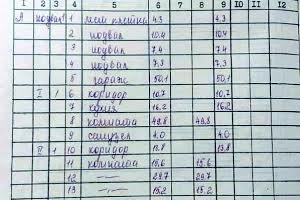 1 2 3 4 5 6 7 8 9 10 11 12
А подвал 1 4.3 4.3
2 подвал 10.4 10.4
3 подвал 7.4 7.4
4 подвал 7.3 7.3
5 гараж 50,1 50,1
I 1 6 коридор 10,7 10,7
7 кухня 16,2 16,2
8 комната 48,8 48,8
9 санузел 4,0 4,0
II 1 10 коридор 13,8 13,8
11 комната 15,6 15,6
12 —"— 29,7 29,7
13 —"— 15,2 15,2